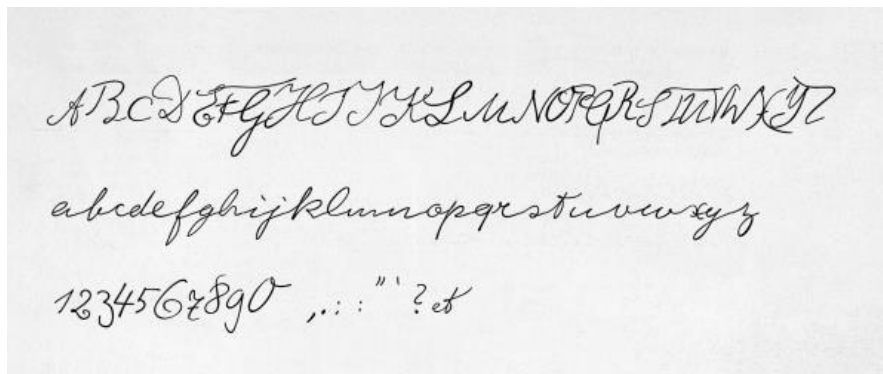 ABCDEFGHIJKLMNOPQRSTUVWXYZ
abcdefghijklmnopqrstuvwxyz
1234567890 ,.: : " ' ? et